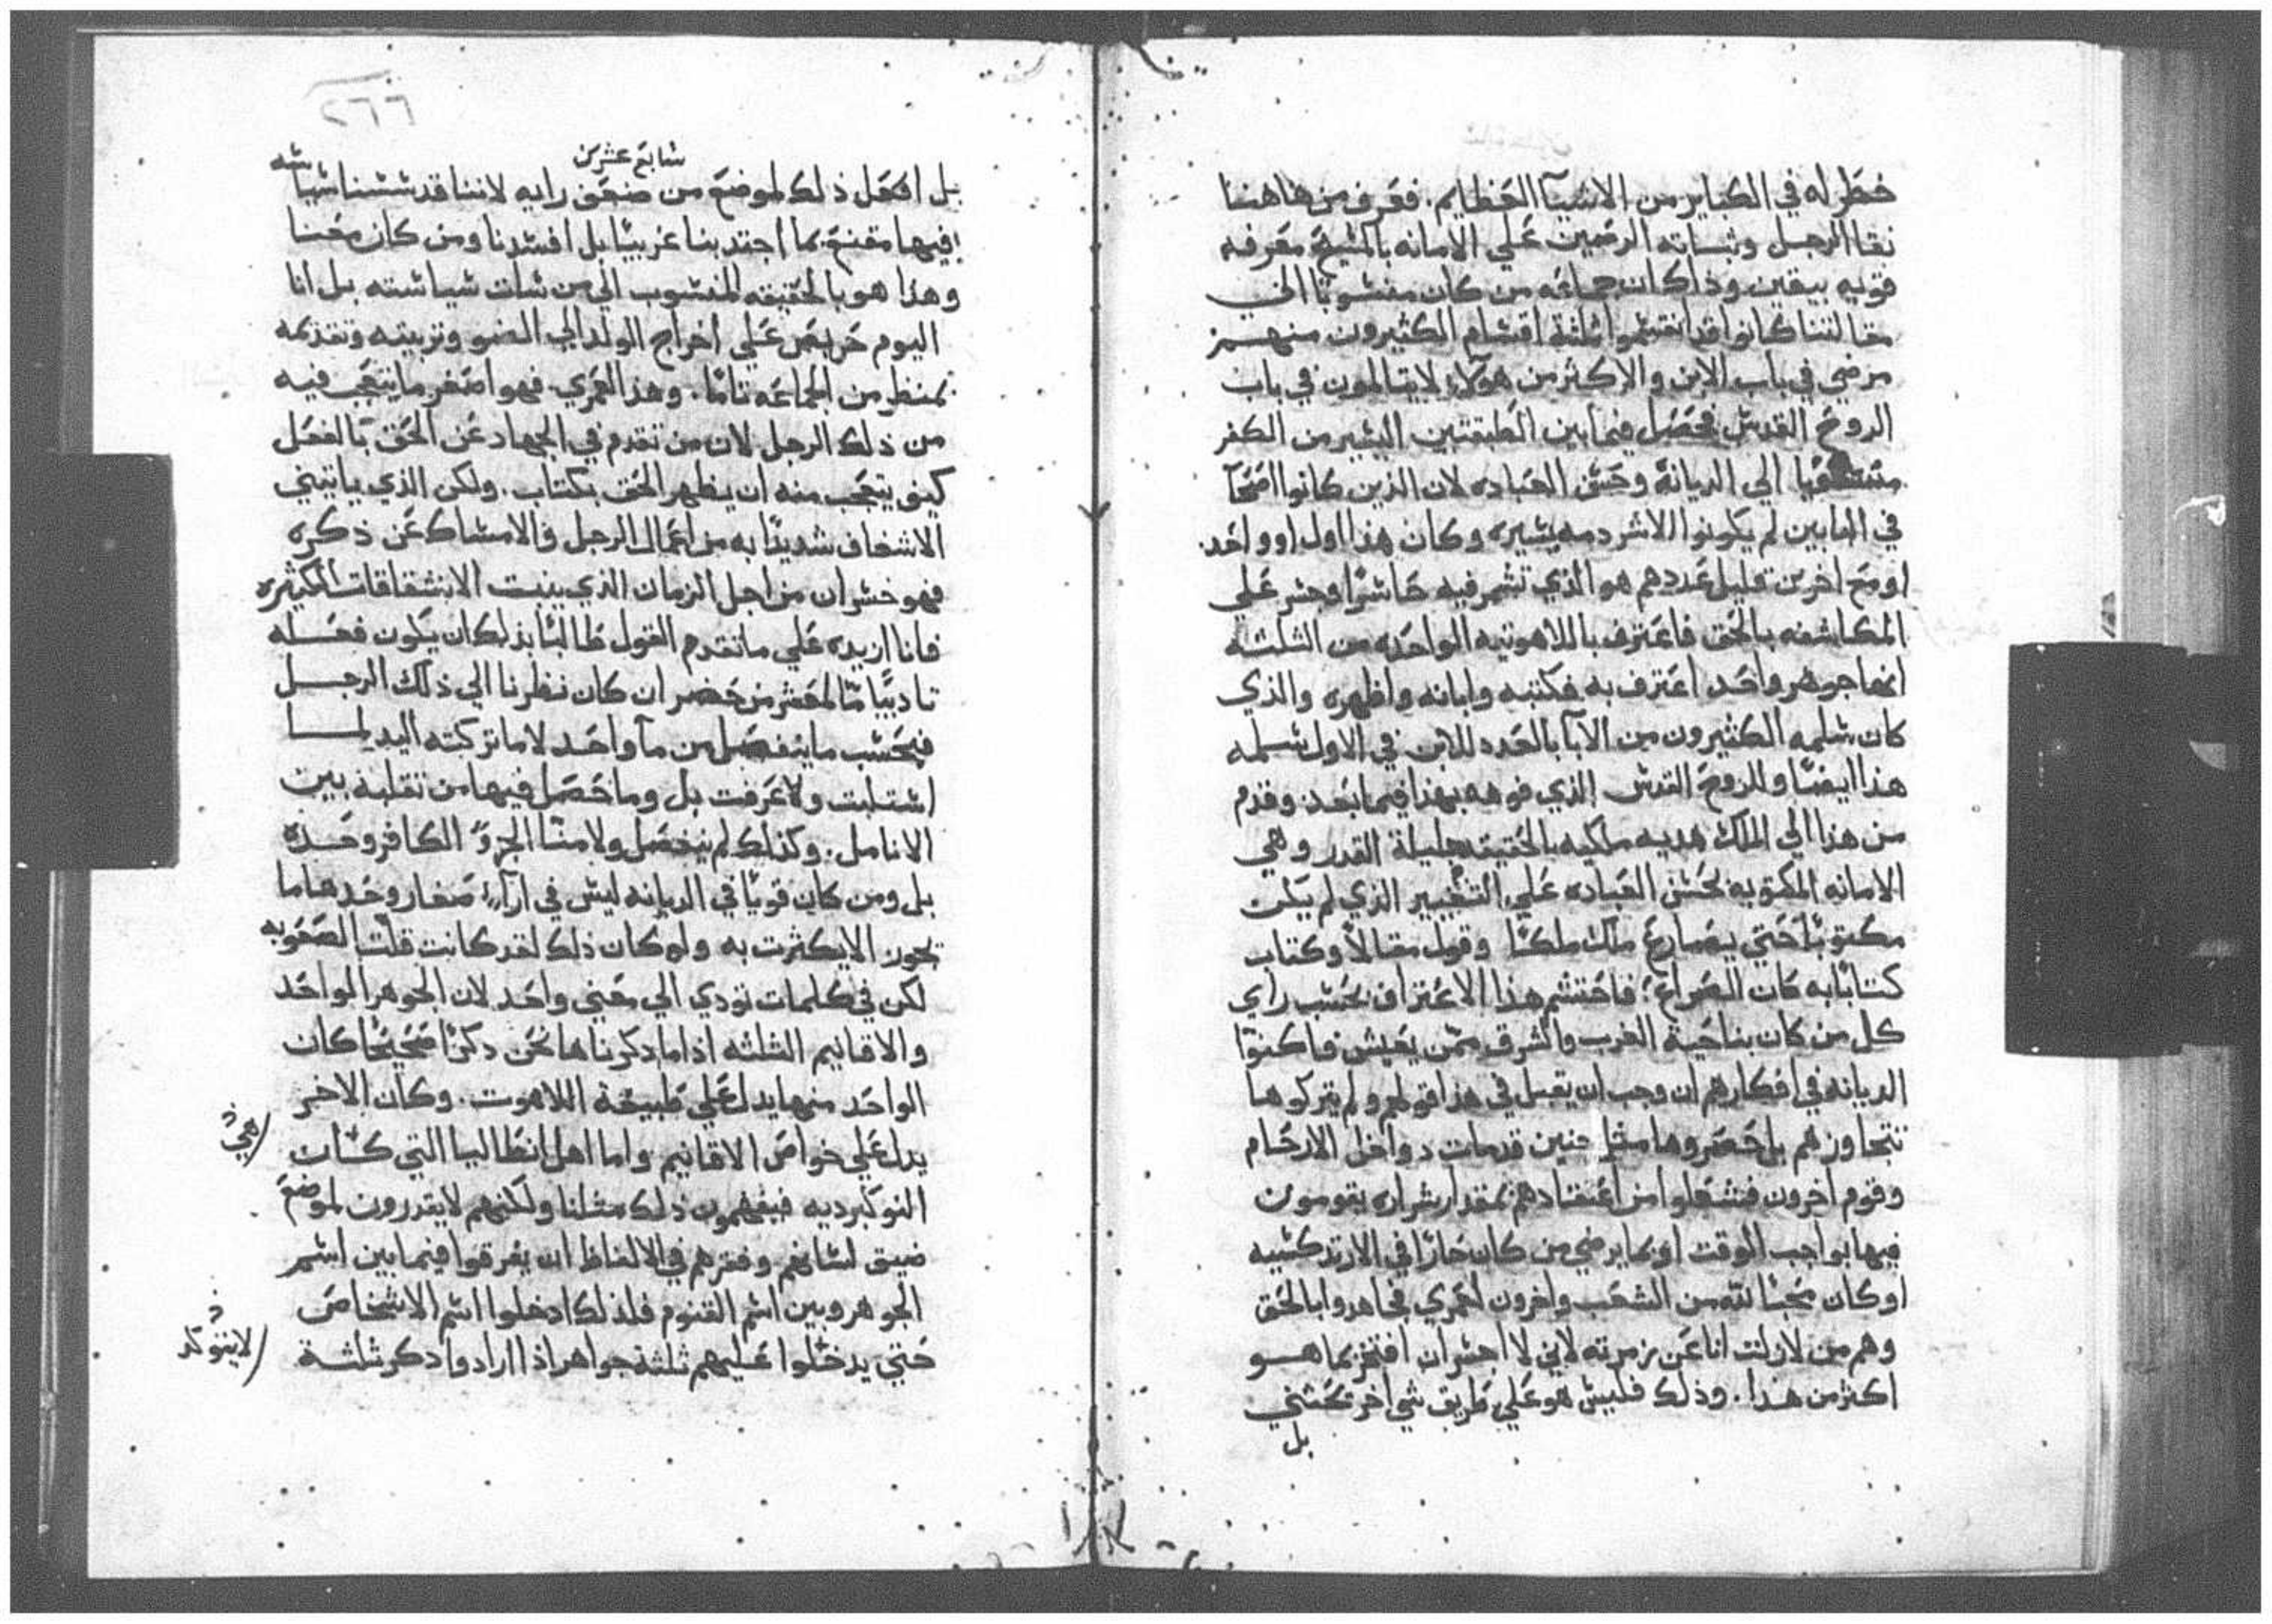 خطر له في الكباير من الاشيآ العظايم. فعرف من هاهنا
نقا الرجل وثباته الرصين علي الامانه بالمسيح معرفه
قويه بيقين وذاكان جماعه من كان منسوبا الي
مقالتنا كانوا قد انقسموا ثلثة اقسام الكثيرون منهم
مرضي في باب الابن والاكثر من هولآء لايتالمون في باب
الروح القدس فحصل فيما بين الطبقتين اليسير من الكفر
منسوبا الي الديانة وحسن العباده لان الذين كانوا اصحآ
في المابين لم يكونوا الا شردمه يسيره وكان هذا اول او واحد
او مع اخرين قليل عددهم هو الذي تشمر فيه حاسرا وجسر علي
المكاشفه بالحق فاعترف باللاهوتيه الواحده من الثلثه
انها جوهر واحد اعترف به فكتبه وابانه واظهره والذي
كان سلمه الكثيرون من الآبا بالعدد للابن في الاول سلمه
هذا ايضا وللروح القدس الذي فوهه بهذا فيما بعد وقدم
من هذا الي الملك هديه ملكيه بالحقيقه جليلة القدر وهي
الامانه المكتوبه لحسن العباده علي التغيير الذي لم يكن
مكتوبا حتي يصارع ملك ملكا وقول مقالا وكتاب
كتابا به كان الصراع؛ فاحتشم هذا الاعتراف بحسب راي
كل من كان بناحية الغرب والشرق ممن يعيش فاكنوا
الديانه في افكارهم ان وجب ان يقبل في هذا قولهم ولم يتركوها
تتجاوزهم بل حصروها مثل جنين قدمات دواخل الارحام
وقوم اخرون فشعلوا من اعتقادهم بمقدار شراره يقومون
فيها بواجب الوقت او بما يرضي من كان حارا في الارتدكسيه
او كان محبا لله من الشعب واخرون لعمري فجاهروا بالحق
وهم من لازلت انا عن زمرته لاني لا اجسر ان افتخر بما هو
اكثر من هذا. وذلك فليس هو علي طريق شي اخر بحسني
بل
٢٦٦
سابع عشرين
بل افعل ذلك لموضع من ضعف رايه لاننا قد سسنا سياسه
فيها مقنع بما اجتد بنا غريبا بل افسدنا ومن كان معنا
وهذا هو بالحقيقه المنسوب الي من سات سياسته بل انا
اليوم حريص علي اخراج الولد الي الضو وتربيته وتقدمه
بمنظر من الجماعه تاما. وهذا لعمري فهو اصغر ما يتعجب فيه
من ذلك الرجل لان من تقدم في الجهاد عن الحق بالفعل
كيف يتعجب منه ان يظهر الحق بكتاب. ولكن الذي ياتيني
الاشغاف شديدا به من اعمال الرجل والامساك عن ذكره
فهو خسران من اجل الزمان الذي ينبت الانشقاقات الكثيره
فانا ازيده علي ما تقدم القول طالبا بذلك ان يكون فعله
تاديبا ما لمعشر من حضر ان كان نظرنا الي ذلك الرجل
فبحسب ما ينفصل من مآ واحد لاما تركته اليد لما
استلبت ولا غرفت بل وما حصل فيها من تقلبه بين
الانامل. وكذلك لم ينفصل ولا منا الجزو الكافر وحده
بل ومن كان قويا في الديانه ليس في ارآء صغار وحدها ما
بجوز الايكثرت به ولو كان ذلك لقد كانت قلت الصعوبه
لكن في كلمات تودي الي معني واحد لان الجوهر الواحد
والاقانيم الثلثه اذا ما دكرناها نحن دكرا صحيحا كان
الواحد منها يدل علي طبيعة اللاهوت. وكان الاخر
يدل علي خواص الاقانيم واما اهل انطاليا التي كسات
النوكبرديه فيفهمون ذلك مثلنا ولكنهم لا يقدرون لموضع
ضيق لسانهم وفقرهم في الالفاظ ان يفرقوا فيما بين اسم
الجوهر وبين اسم القنوم فلذلك ادخلوا اسم الاشخاص
حتي يدخلوا عليهم ثلثة جواهر اذا ارادوا دكر ثلثة
هي